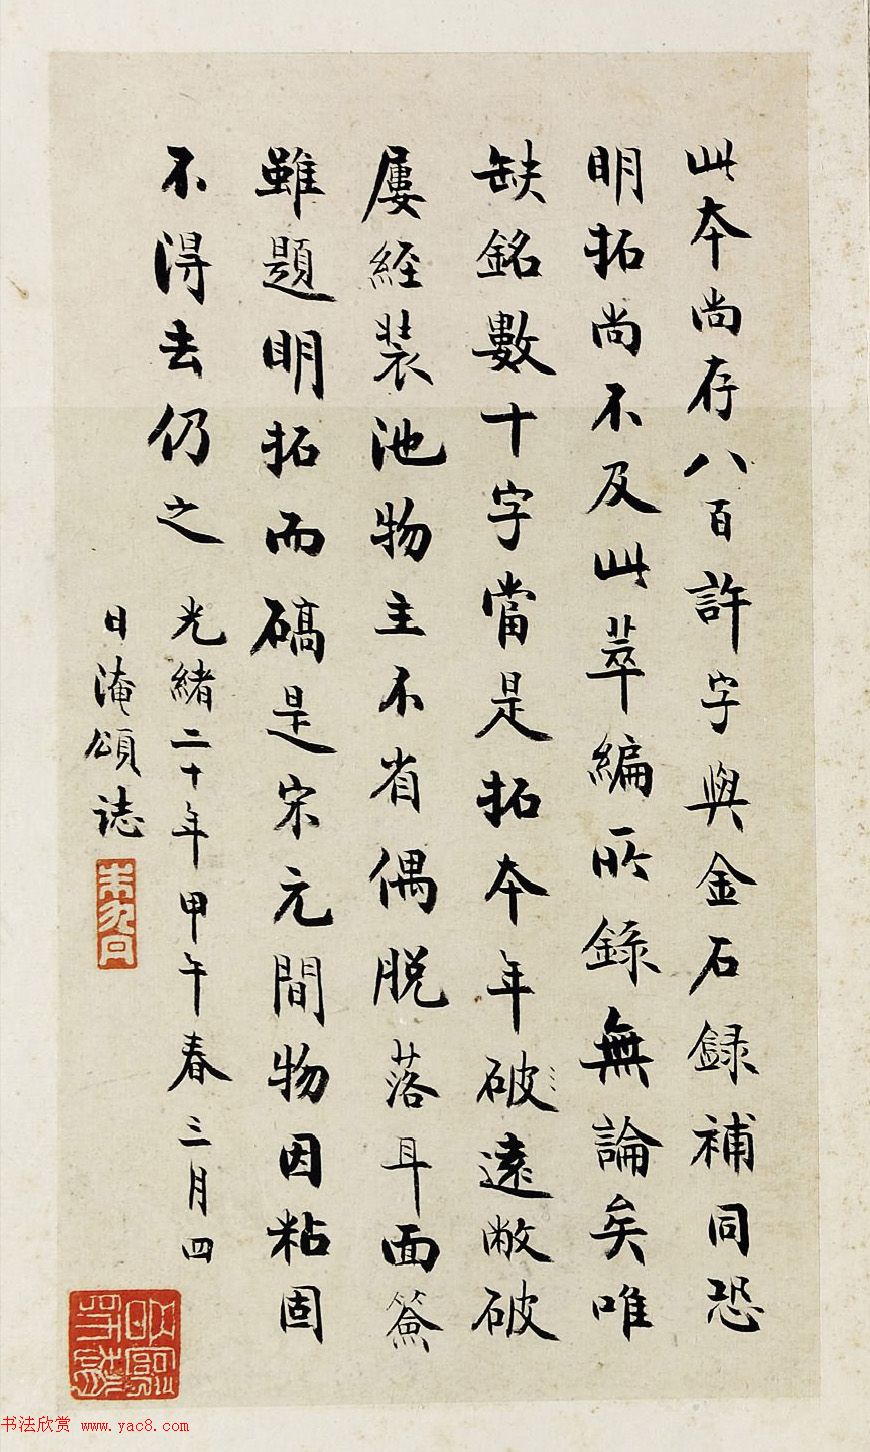 此本尚存八百許字與金石録補同恐
明拓尚不及此萃編所錄無論矣唯
缺銘數十字當是拓本年破遠敝破
屢經装池物主不省偶脱落耳面簽
雖題明拓而碻是宋元間物因粘固
不得去仍之 光緒二十年甲午春三月四
日淹頌誌
书法欣赏 www.yac8.com